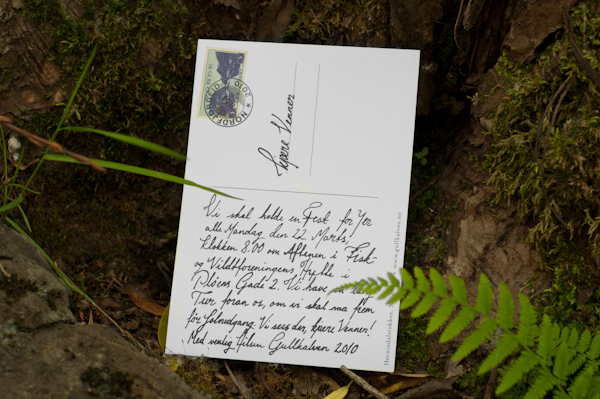 NORGE
NORDFJORDEID
2010
Kjære Venner
Vi skal holde en Fest for Yer
alle Mandag den 22 Marts,
Klokken 8:00 om Aftenen i Fisk-
og Vildtforeningens Hytte i
Gade 2. Vi have en
Tur foran os, om vi skal nå frem
för Solnedgang. Vi sees der, kjære Venner!
Med venlig Hilsen Gullkalven 2010
www.gullkalven.no